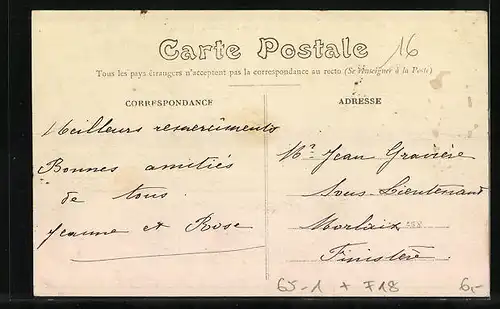 16
Carte Postale
Tous les pays étrangers n'acceptent pas la correspondance au recto (Se renseigner à la Poste)
CORRESPONDANCE
Meilleurs remerciments
Bonnes amitiés
de tous.
Jeanne et Rose
ADRESSE
Mr. Jean Gravière
Sous-Lieutenant
Morlaix
Finistère
65-1 + F18
6,-